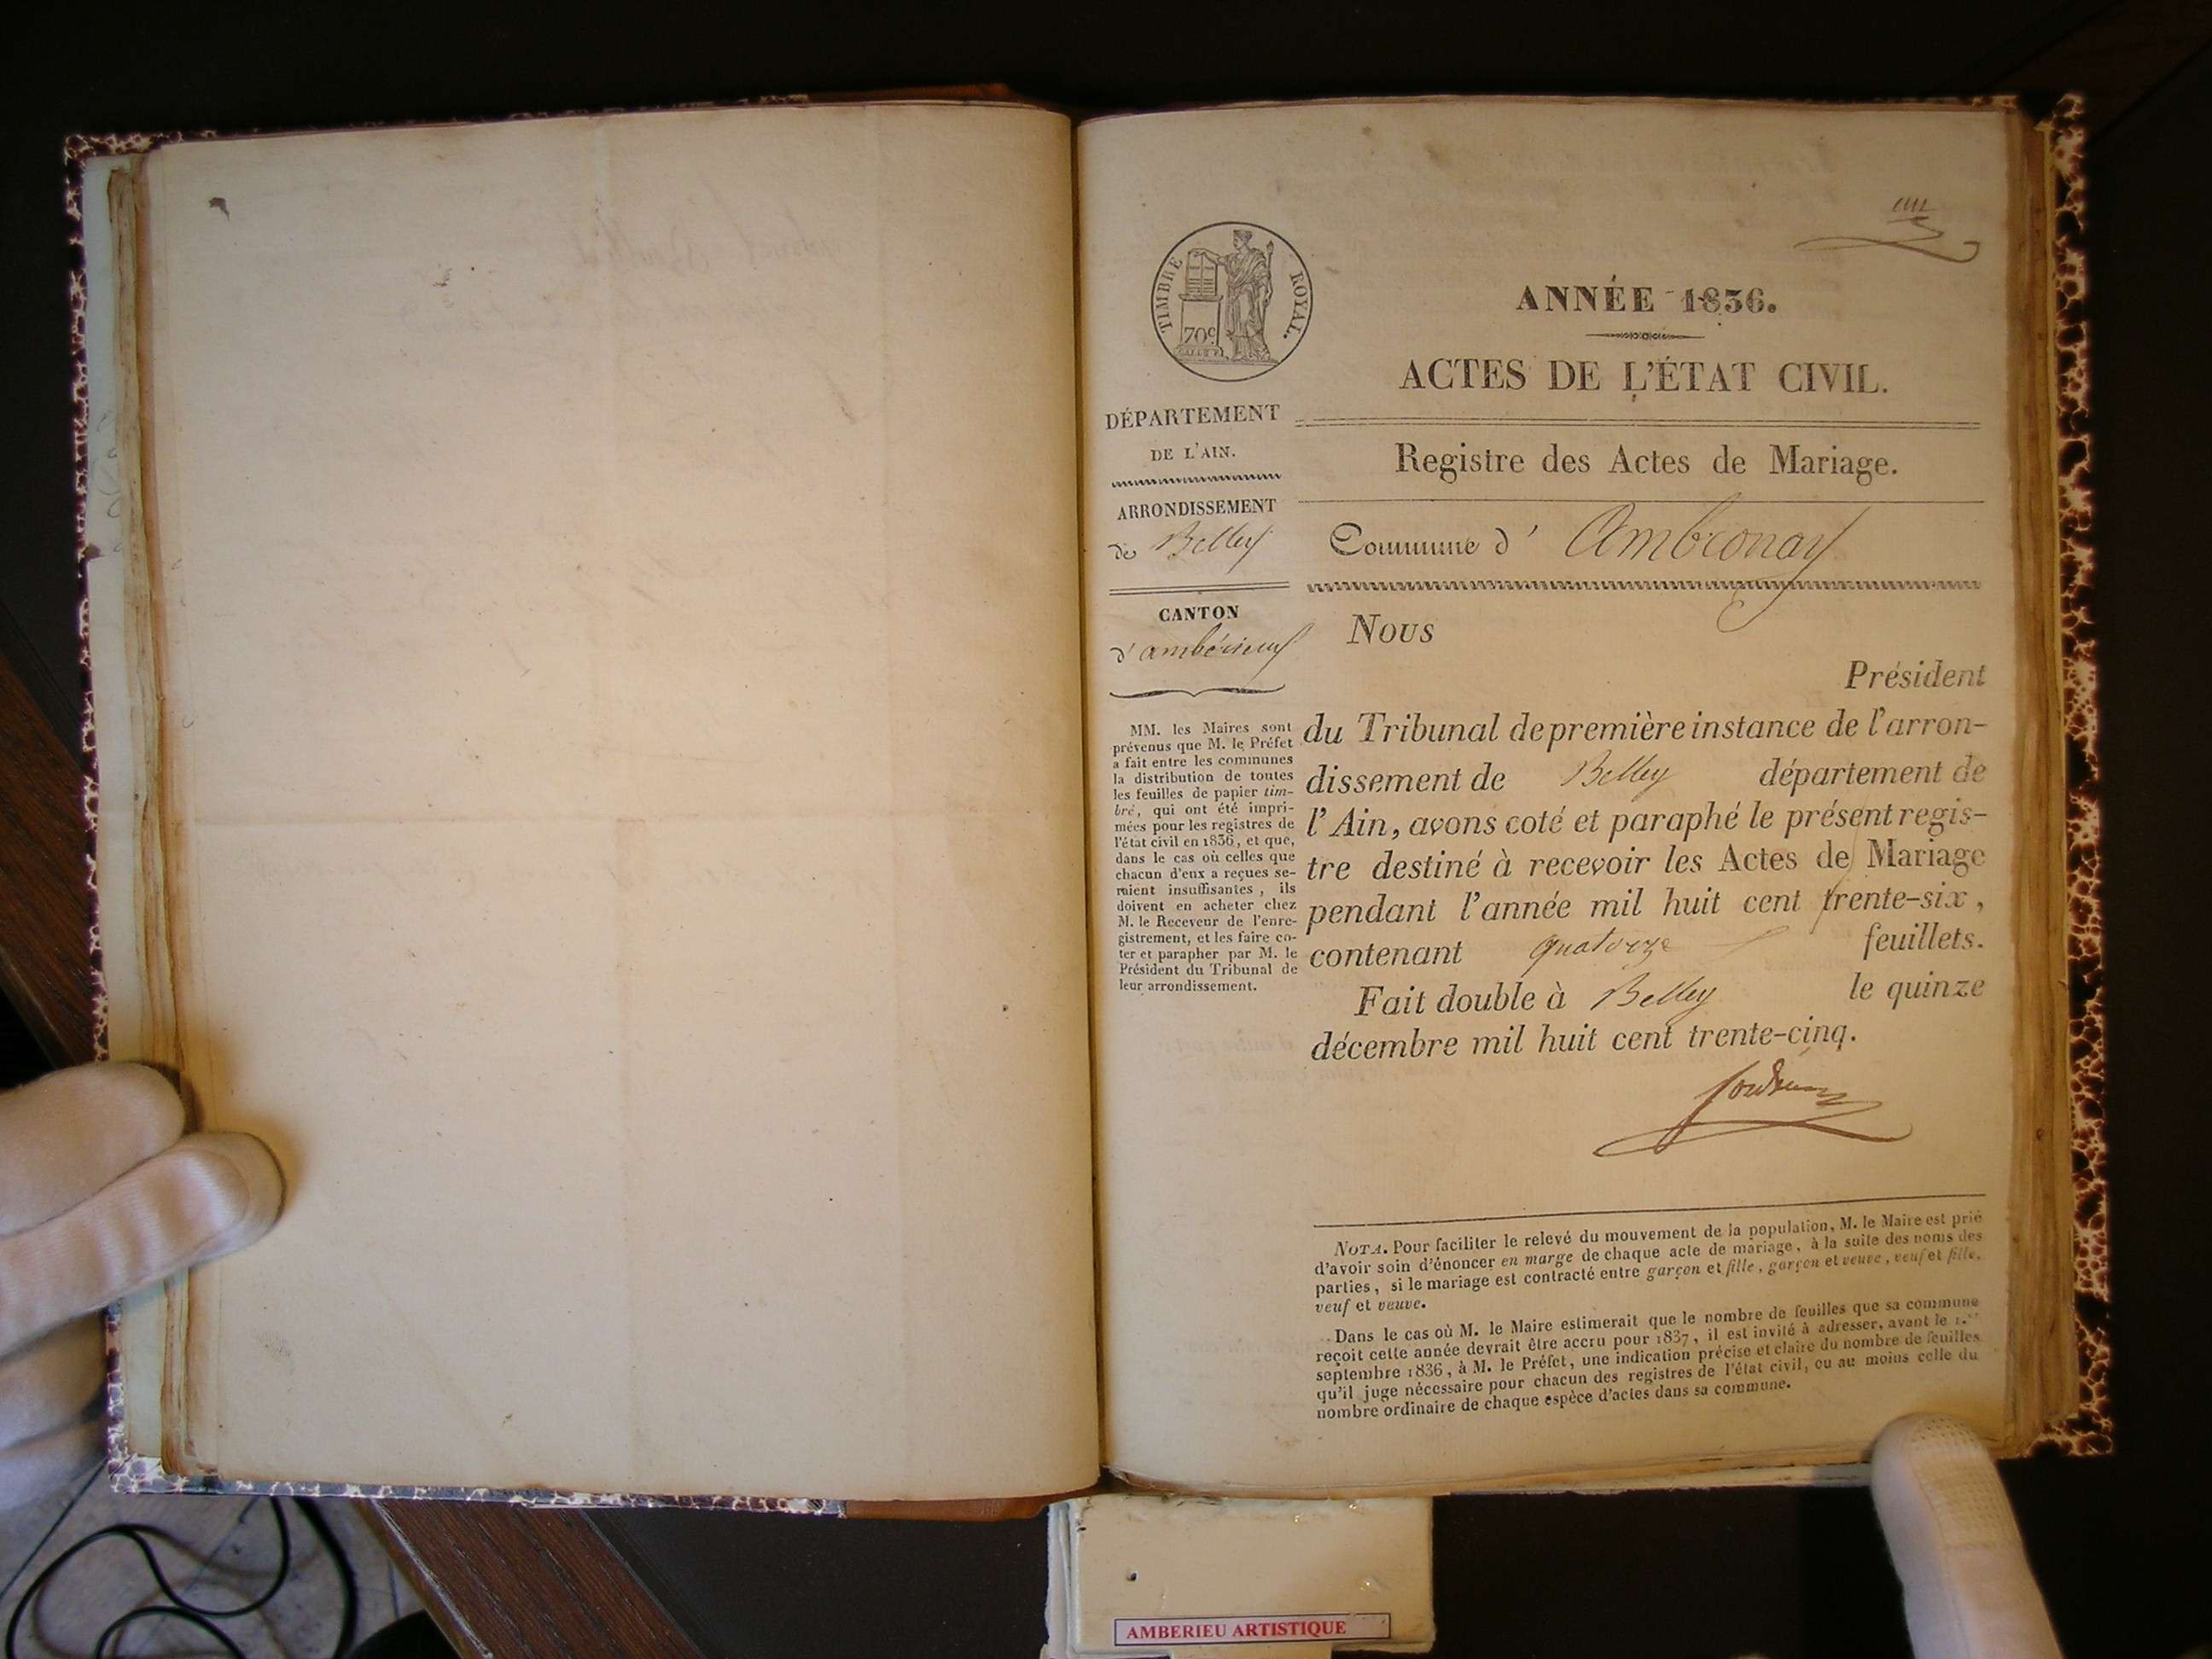 un
TIMBRE ROYAL.
70c
ANNÉE 1836.
ACTES DE L'ÉTAT CIVIL.
Registre des Actes de Mariage.
Commune d' Ambronay
DÉPARTEMENT
DE L'AIN.
ARRONDISSEMENT
de Belley
CANTON
d'ambérieux
MM. les Maires sont
prévenus que M. le Préfet
a fait entre les communes
la distribution de toutes
les feuilles de papier tim-
bré, qui ont été impri-
mées pour les registres de
l'état civil en 1836, et que,
dans le cas où celles que
chacun d'eux a reçues se-
raient insuffisantes, ils
doivent en acheter chez
M. le Receveur de l'enre-
gistrement, et les faire co-
ter et parapher par M. le
Président du Tribunal de
leur arrondissement.
Nous
Président
du Tribunal de première instance de l'arron-
dissement de Belley département de
l'Ain, avons coté et paraphé le présent regis-
tre destiné à recevoir les Actes de Mariage
pendant l'année mil huit cent trente-six,
contenant quatorze feuillets.
Fait double à Belley le quinze
décembre mil huit cent trente-cinq.
NOTA. Pour faciliter le relevé du mouvement de la population, M. le Maire est prié
d'avoir soin d'énoncer en marge de chaque acte de mariage, à la suite des noms des
parties, si le mariage est contracté entre garçon et fille, garçon et veuve, veuf et fille,
veuf et veuve.
Dans le cas où M. le Maire estimerait que le nombre de feuilles que sa commune
reçoit cette année devrait être accru pour 1837, il est invité à adresser, avant le 1.er
septembre 1836, à M. le Préfet, une indication précise et claire du nombre de feuilles
qu'il juge nécessaire pour chacun des registres de l'état civil, ou au moins celle du
nombre ordinaire de chaque espèce d'actes dans sa commune.
AMBERIEU ARTISTIQUE